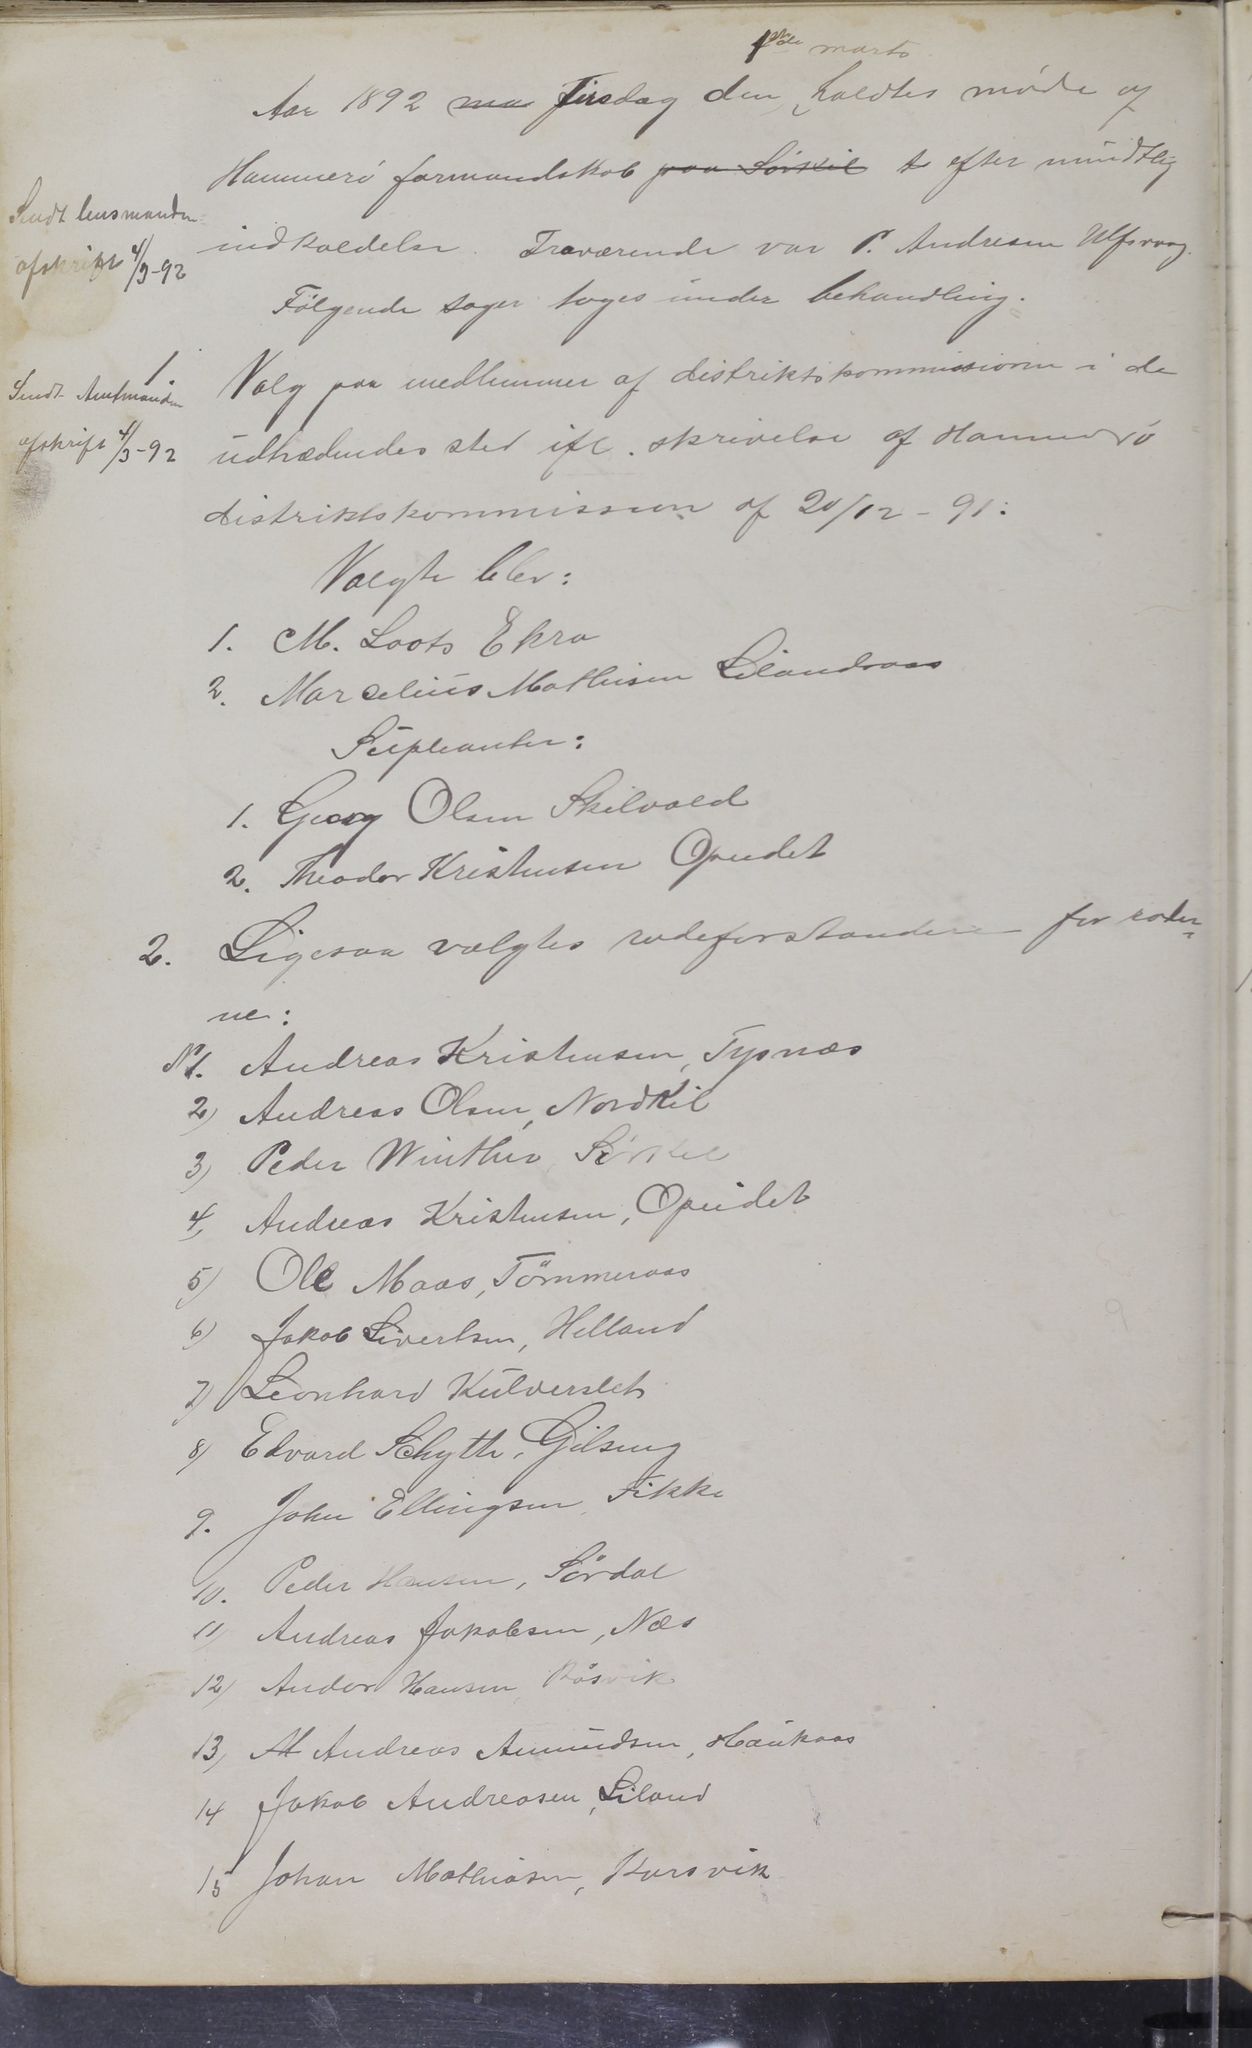 1ste marts
Aar 1892 ma Tirsdag den holdtes møde af
Hammerø formandskab paa Sørkil te efter mundtlig
Sendt lensmanden
afskrift 4/3-92
indkaldelse. Fraværende var P. Andresen Ulfsvaag.
Følgende sager toges under behandling.
Sendt Amtmanden
afskrift 4/3-92
1 Valg paa medlemmer af distriktskommissionen i de
udtrædendes sted ifl. skrivelse af Hammerø
distriktskommission af 20/12-91:
Valgte blev:
1. M. Loots Ekra
2. Marselius Mathisen Lilandsaas
Supleanter:
1. Georg Olsen Skilvald
2. Theodor Kristensen Opeidet
2. Ligesaa valgtes rodeforstandere for roder=
ne:
N 1. Andreas Kristensen, Tysnæs
2) Andreas Olsen, Nordkil
3) Peder Winther, Sørkil
4, Andreas Kristensen, Opeidet
5) Ole Maas, Tømmeraas
6) Jakob Sivertsen, Helland
7) Leonhard Kulverslet
8) Edvard Schytte, Gilseng
9. John Ellingsen, Fikke
10. Peder Hansen, Sørdal
11) Andreas Jakobsen, Nes
12) Andor Hansen, Røsvik
13) At Andreas Amundsen, Haukaas
14 Jakob Andreasen, Liland
15 Johan Mathiasen, Korsvik